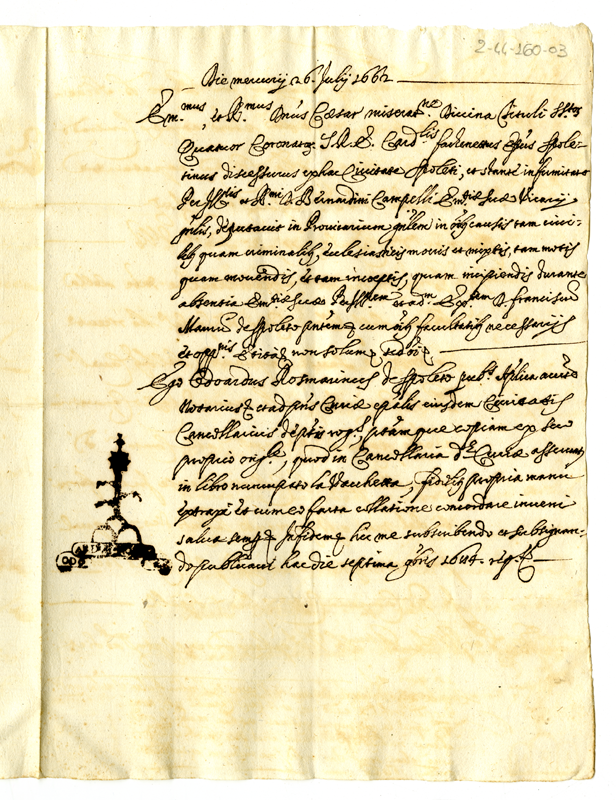 2-44-160-03
Die mercurij 26. Julij 1662
Em.mus, et R.mus D'nus Cæsar miserat.ne Divina Tituli SS.tor
Quatuor Coronator. S.R.E. Card.lis Fachenettus Ep'us Spole-
tinus discessurus ex hac Civitate Spoleti, et stante infirmitate
Per Ill'tris et R.mi D. Bernardini Campelli Em.tiæ Suæ Vicarij
g'nlis, deputavit in Provicarium g'nlem in o'ibus causis tam civi-
lib. quam criminalib., ecclesiasticis meris et mixtis, tam motis
quam movendis, et tam inceptis, quam incipiendis durante
absentia Em.tiæ Suæ Per Ill.rem et ad.m Exc.tem D. Franciscum
Maurum de Spoleto p'ntem cum o'ib. facultatib. necessarijs
et opp.nis et ita non solum sed o'i
Ego Odoardus Rosmarineus de Spoleto pub.s Ap'lica auct.e
Notarius et ad p'ns Curiæ ep'alis eiusdem Civitatis
Cancellarius de p'tis rog.s, p'ntem que copiam ex suo
proprio orig.e, quod in Cancellaria d.æ Curiæ asservatur
in libro nuncupato la Vacchetta, fideliter propria manu
extraxi et cum eo facta collatione concordare inveni
salva semp. In fidem hic me subscribendo et subsignan-
do publicavi hac die septima 9bris 1664. rog.s
ODO